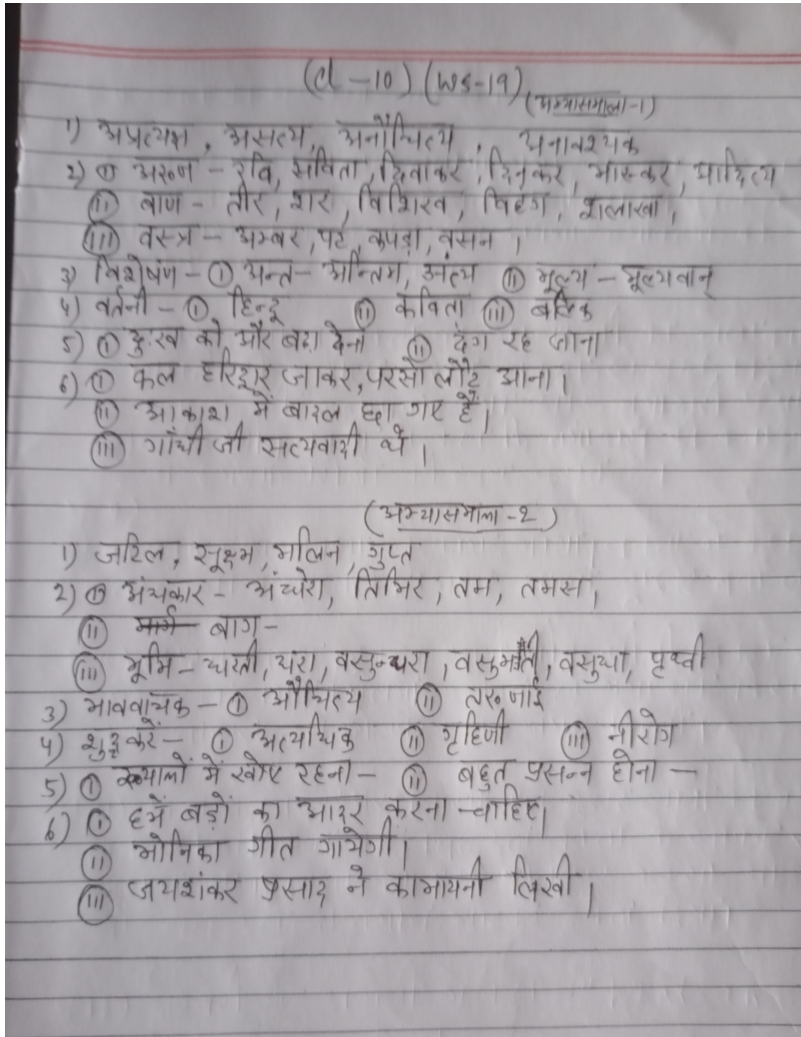 (Cl - 10) (WS-19)
(अभ्यासमाला-1)
1) अप्रत्यक्ष, असत्य, अनौचित्य, अनावश्यक
2) (i) अरुण - रवि, सविता, दिवाकर, दिनकर, भास्कर, आदित्य
(ii) बाण - तीर, शर, विशिख, विहग, शलाखा,
(iii) वस्त्र - अम्बर, पट, कपड़ा, वसन।
3) विशेषण - (i) अन्त - अन्तिम, अंत्य (ii) मूल्य - मूल्यवान्
4) वर्तनी - (i) हिन्दू (ii) कविता (iii)
5) (i) दुःख को और बढ़ा देना (ii) दंग रह जाना
6) (i) कल हरिद्वार जाकर, परसों लौट आना।
(ii) आकाश में बादल छा गए हैं।
(iii) गाँधी जी सत्यवादी थे।
(अभ्यासमाला -2)
1) जटिल, सूक्ष्म, मलिन, गुप्त
2) (i) अंधकार - अंधेरा, तिमिर, तम, तमस,
(ii) बाग -
(iii) भूमि - धरती, धरा, वसुन्धरा, वसुमती, वसुधा, पृथ्वी
3) भाववाचक - (i) औचित्य (ii) तरुणाई
4) शुद्ध करें - (i) अत्यधिक (ii) गृहिणी (iii) नीरोग
5) (i) ख्यालों में खोए रहना - (ii) बहुत प्रसन्न होना -
6) (i) हमें बड़ों का आदर करना चाहिए।
(ii) मोनिका गीत गायेगी।
(iii) जयशंकर प्रसाद ने कामायनी लिखी।